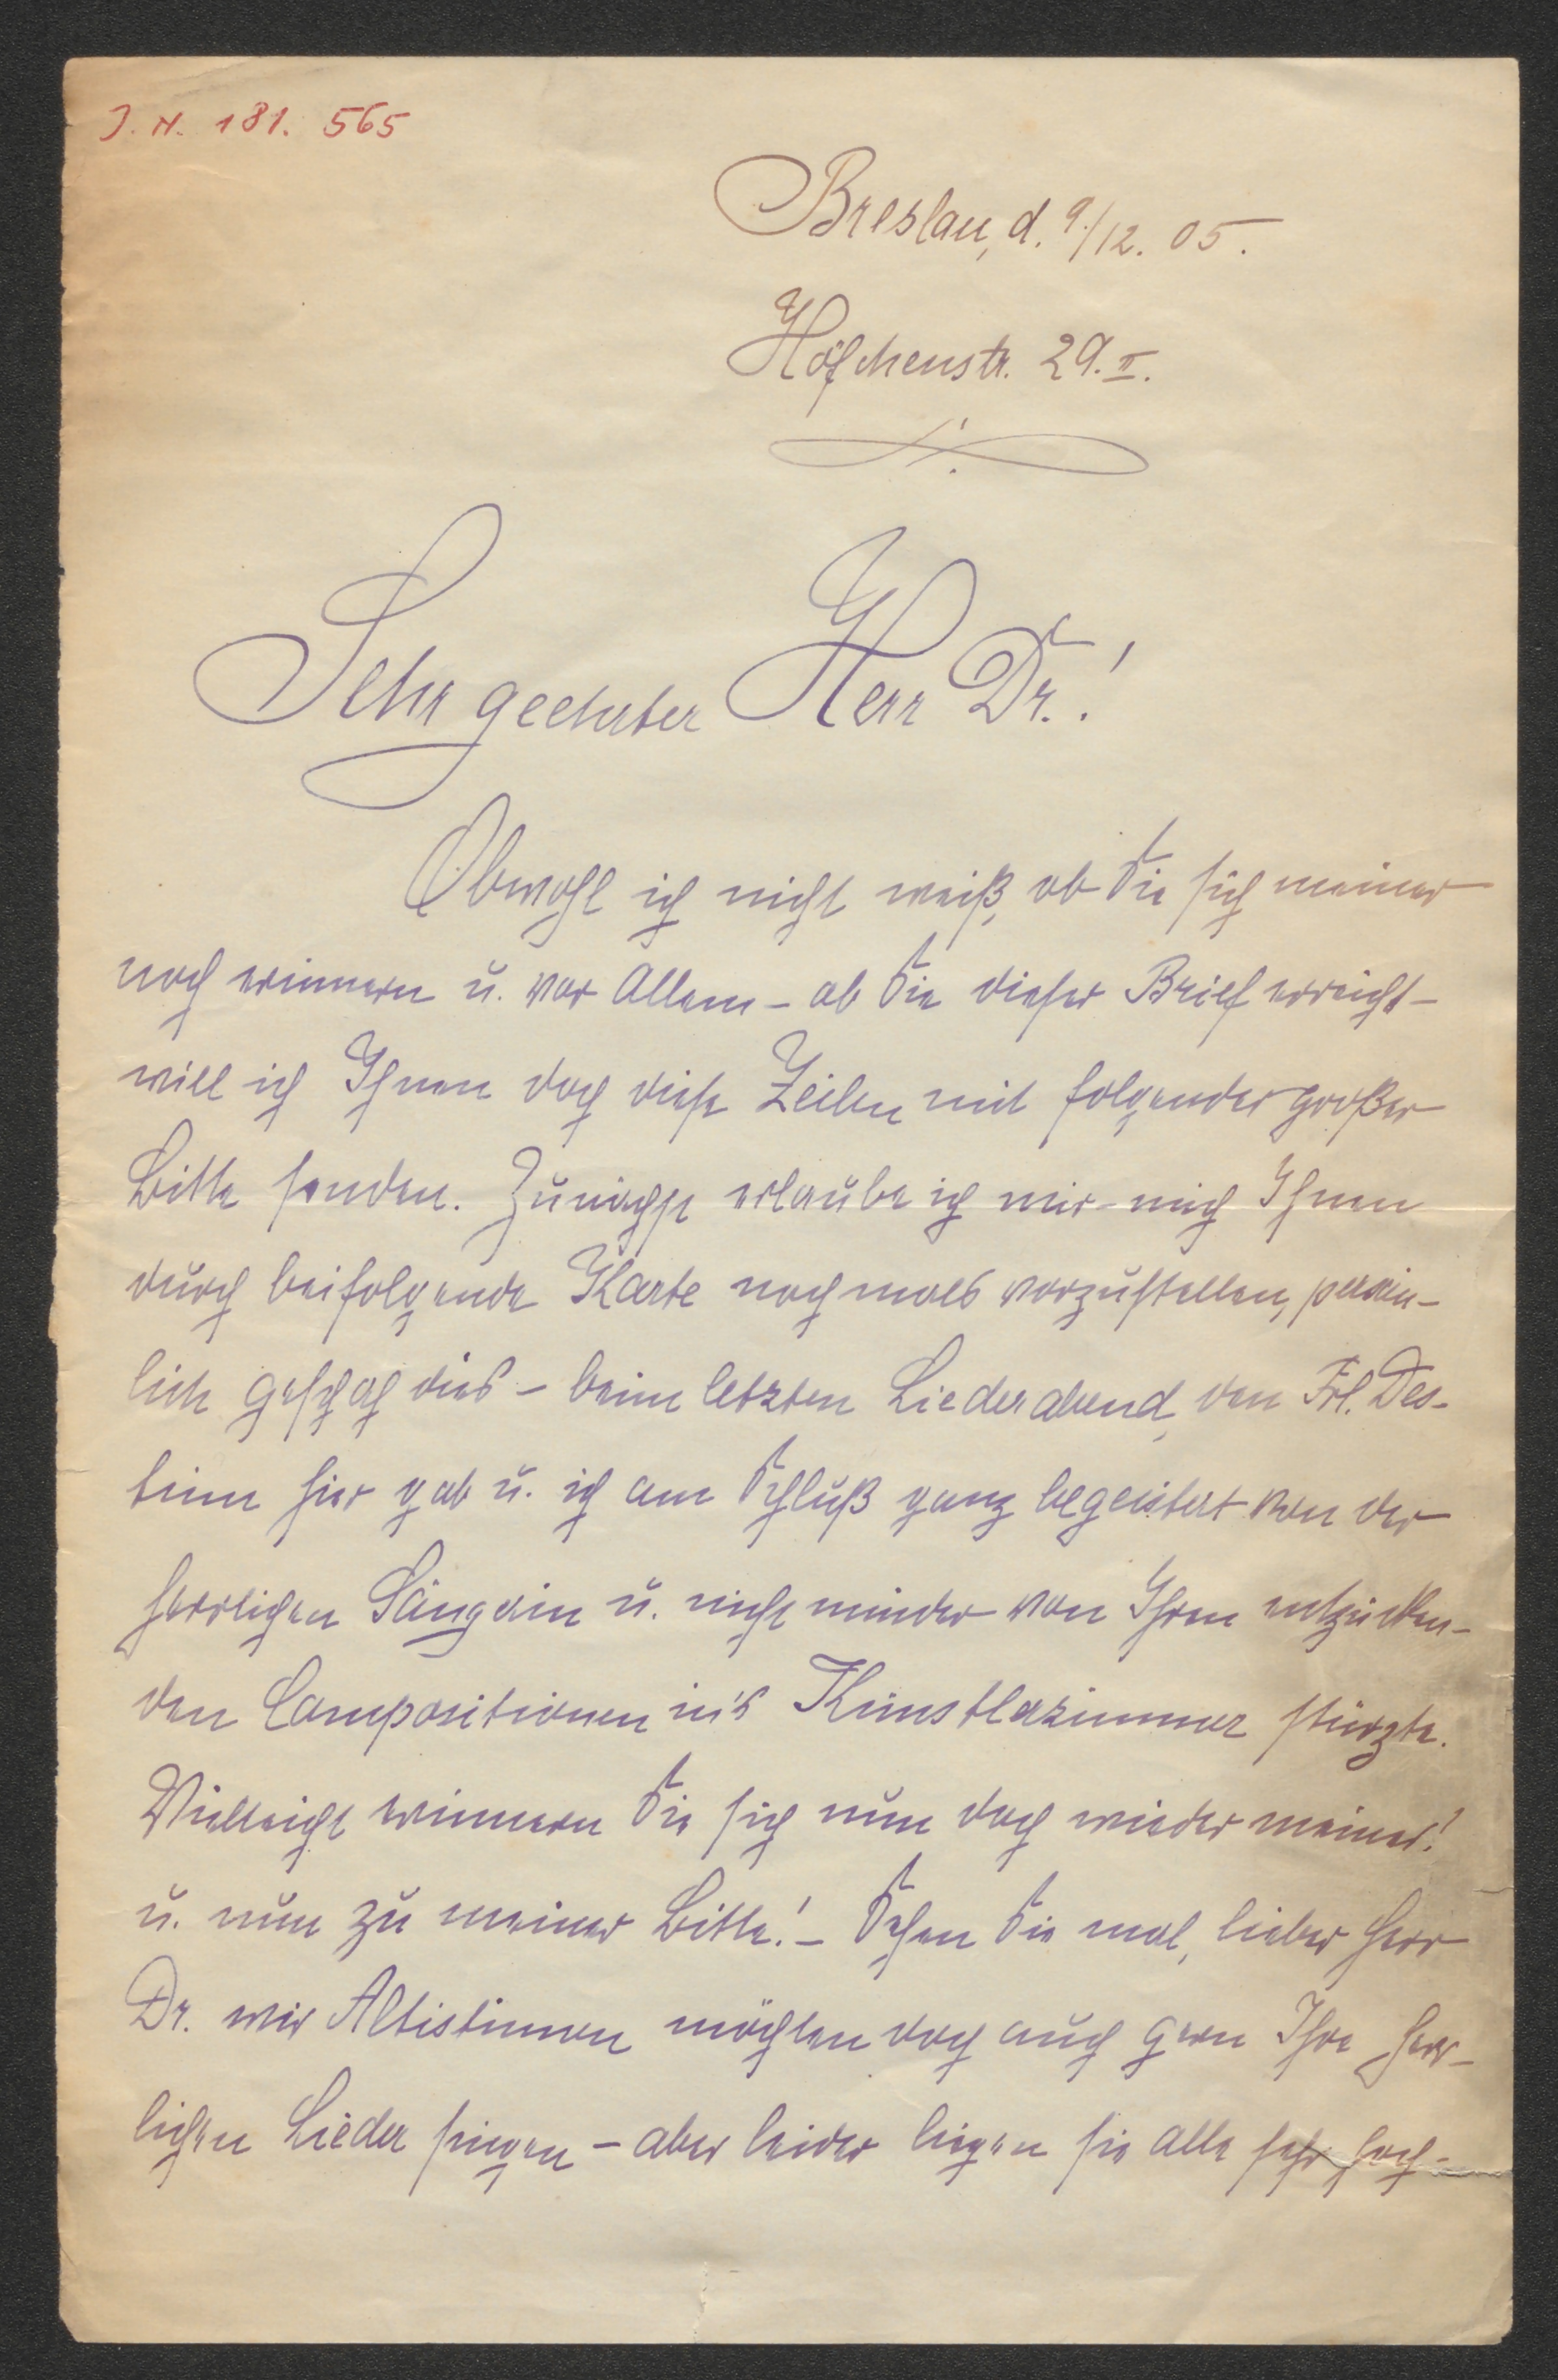 J. N. 181. 565
Breslau, d. 9/12. 05.
Höfchenstr. 29. II.
Sehr geehrter Herr Dr.!
Obwohl ich nicht weiß, ob Sie sich meiner
noch erinnern u. vor Allem - ob Sie dieser Brief erreicht -
will ich Ihnen doch diese Zeilen mit folgender großer
Bitte senden. Zunächst erlaube ich mir - mich Ihnen
durch beifolgende Karte nochmals vorzustellen, persön-
lich geschah dies - beim letzten Liederabend, den Frl. Des-
tinn hier gab u. ich am Schluß ganz begeistert von der
herrlichen Sängerin u. nicht minder von Ihren entzücken-
den Compositionen in's Künstlerzimmer stürzte.
Vielleicht erinnern Sie sich nun doch wieder meiner!
u. nun zu meiner Bitte! - Sehen Sie mal, lieber Herr
Dr. wir Altistinnen möchten doch auch gern Ihre herr-
lichen Lieder singen - aber leider liegen sie alle sehr hoch -